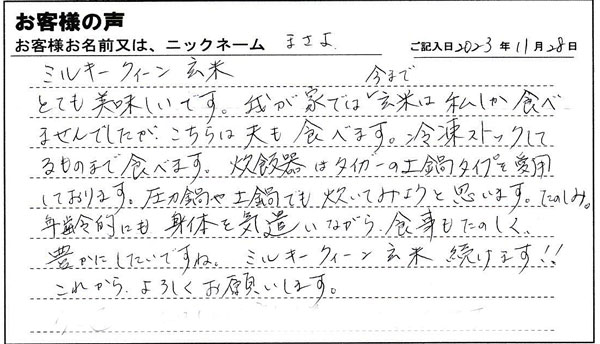 お客様の声
お客様お名前又は、ニックネーム まさよ ご記入日2023年11月28日
ミルキークィーン 玄米 今まで
とても美味しいです。我が家では玄米は私しか食べ
ませんでしたが、こちらは夫も食べます。冷凍ストックして
るものまで食べます。炊飯器はタイガーの土鍋タイプを愛用
しております。圧力鍋や土鍋でも炊いてみようと思います。たのしみ。
年齢的にも身体を気遣いながら、食事もたのしく、
豊かにしたいですね。ミルキークィーン玄米 続けます!!
これから、よろしくお願いします。